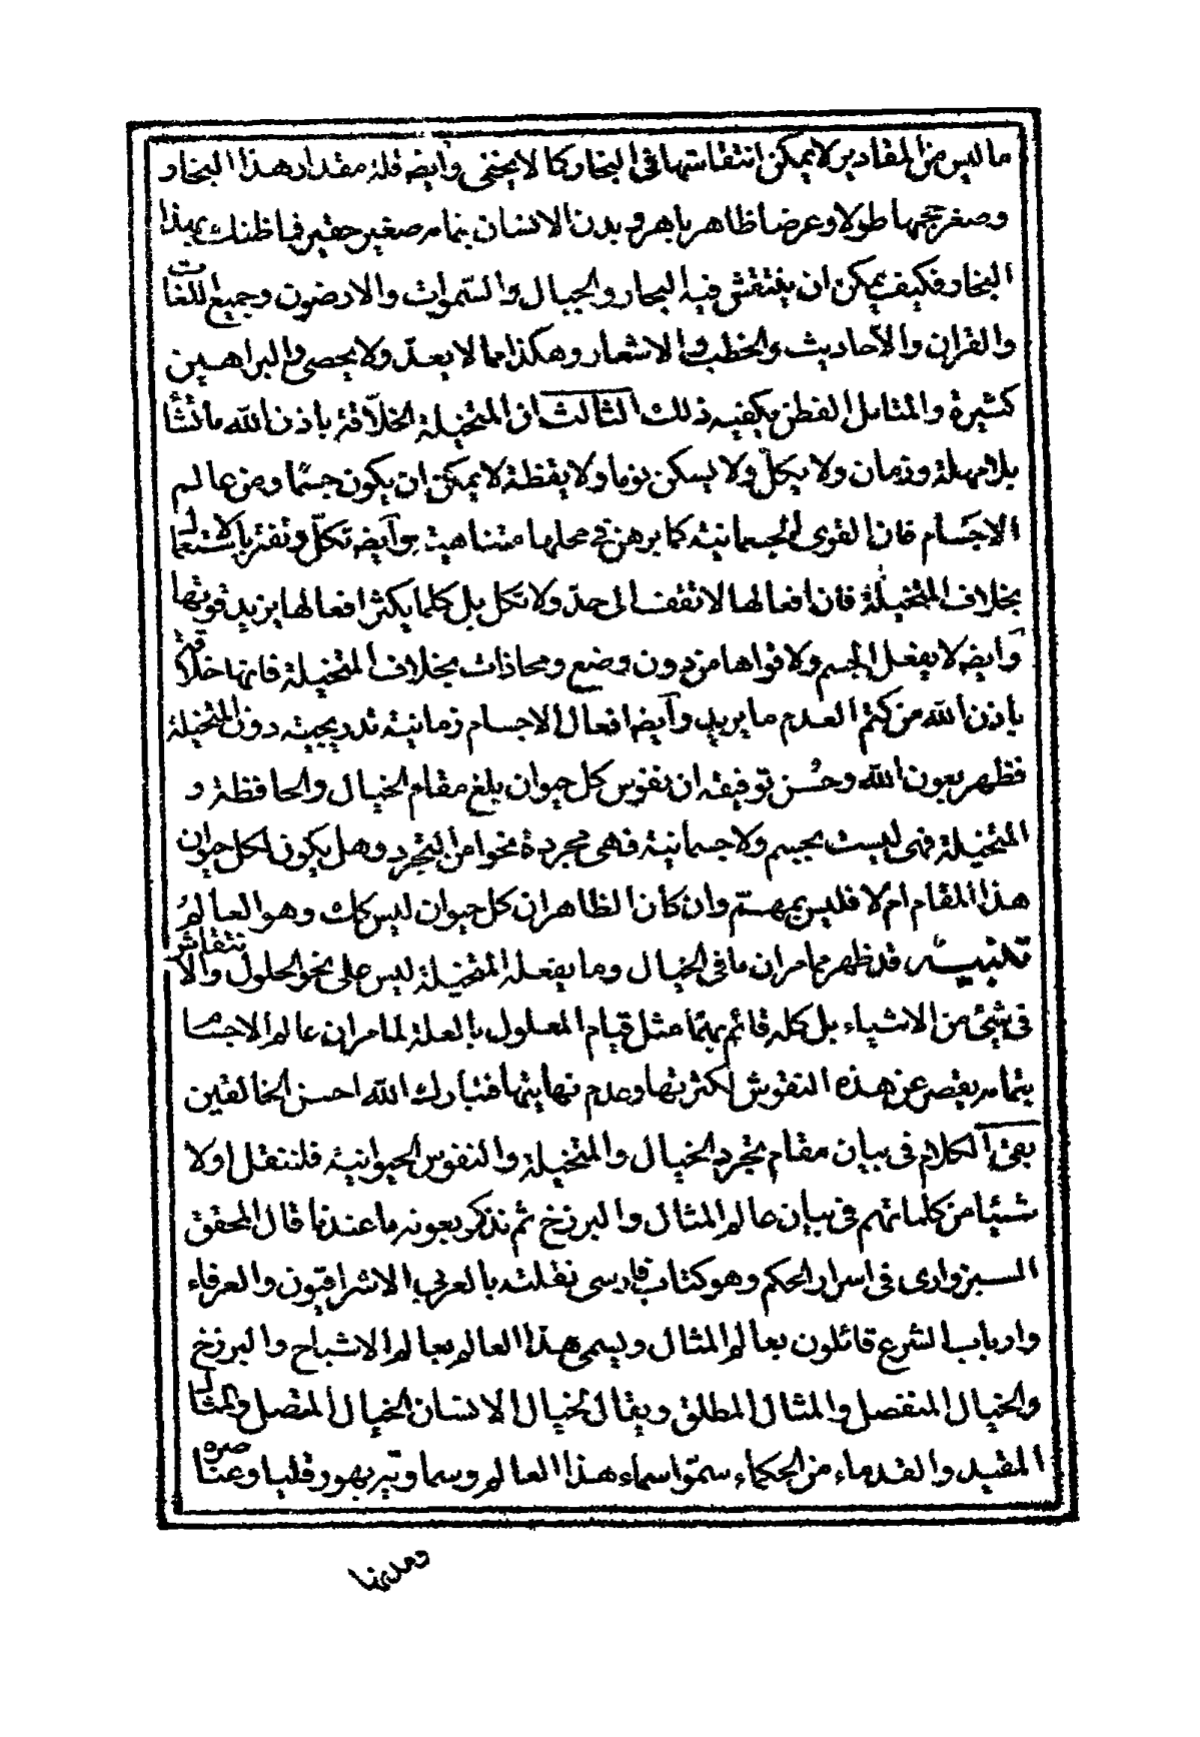 ما ليس من المقادير لا يمكن انتقاشها في البخار وكما لا يخفى وايضه قلة مقدار هذا البخار و
وصغر حجمها طولا وعرضا ظاهر باهر وبدن الانسان بتمامه صغير حقير فما ظنك بهذا
البخار فكيف يمكن ان ينتقش فيه البحار والجبال والسّموات والارضون وجميع اللغات
والقران والأحاديث والخطب والاشعار وهكذا مما لا يعدّ ولا يحصى والبراهين
كثيرة والمتامل الفطن يكفيه ذلك الثالث ان المتخيلة الخلّاقة باذن الله ما تشأ
بلا مهلة وزمان ولا يكلّ ولا يسكن نوما ولا يقظة لا يمكن ان يكون جسمًا ومن عالم
الاجسام فان القوى الجسمانية كما برهن في محلها متناهية وايضه تكلّ وتفتر بالاستعمال
بخلاف المتخيلة فان افعالها لا تقف الى حدّ ولا تكل بل كلما يكثر افعالها يزيد قوتها
وايضه لا يفعل الجسم ولا قواها من دون وضع ومحاذات بخلاف المتخيلة فانها خلاقة
باذن الله من كتم العدم ما يريد وايضه افعال الاجسام زمانية تدريجية دون المتخيلة
فظهر بعون الله وحُسن توفيقه ان نفوس كل حيوان بلغ مقام الخيال والحافظة و
المتخيلة فهى ليست بجسم ولا جسمانية فهى مجردة نحوا من التجرد وهل يكون لكل حيوان
هذا المقام ام لا فليس بمهتم وان كان الظاهر ان كل حيوان ليس كك وهو العالمُ
تنبيه قد ظهر مما مر ان ما في الخيال وما يفعله المتخيلة ليس على نحو الحلول والانتقاش
في شيئ من الاشياء بل كله قائم بهما مثل قيام المعلول بالعلة لما مر ان عالم الاجسام
بتمامه يقصر عن هذه النقوش لكثرتها وعدم نهايتها فتبارك الله احسن الخالقين
بقى الكلام في بيان مقام تجرد الخيال والمتخيلة والنفوس الحيوانية فلننقل اولا
شيئا من كلماتهم في بيان عالم المثال والبرزخ ثم نذكر بعونه ما عندنا قال المحقق
السبزوارى في اسرار الحكم وهو كتاب فارسى نقلته بالعربى الاشراقيون والعرفاء
وارباب الشرع قائلون بعالم المثال ويسمى هذا العالم بعالم الاشباح والبرزخ
والخيال المنفصل والمثال المطلق ويقال لخيال الانسان الخيال المتصل والمثال
المقيد والقدماء من الحكماء سمّوا اسماء هذا العالم وسماوتيه بهورقليا وعناصره